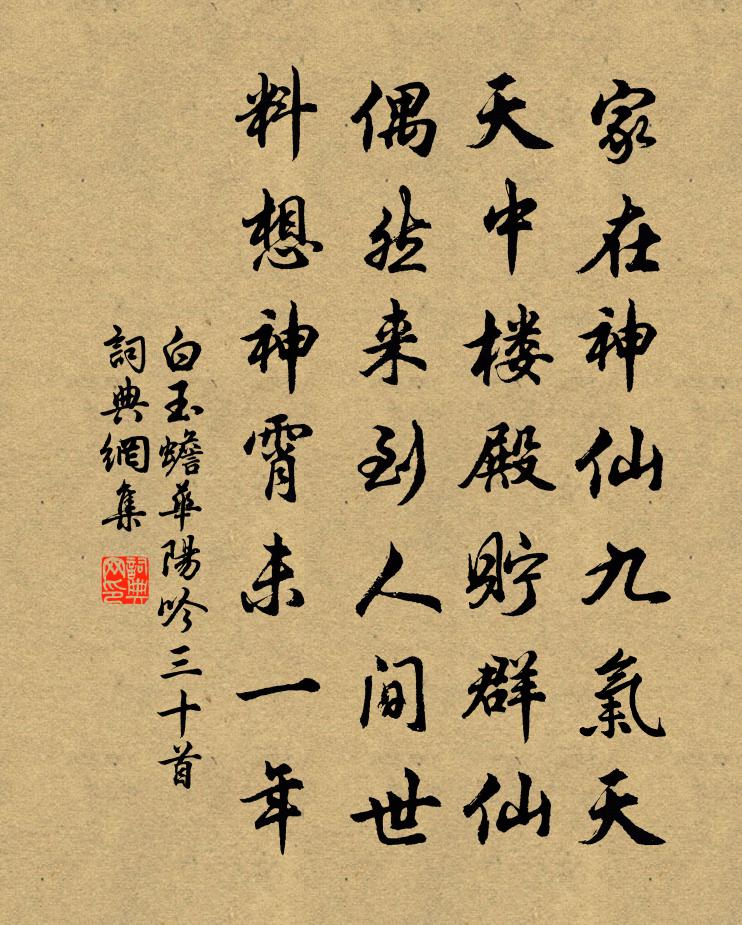 家在神仙九氣天
天中楼殿貯群仙
偶然来到人间世
料想神霄未一年
白玉蟾華陽吟三十首
詞典網集
詞典
网印